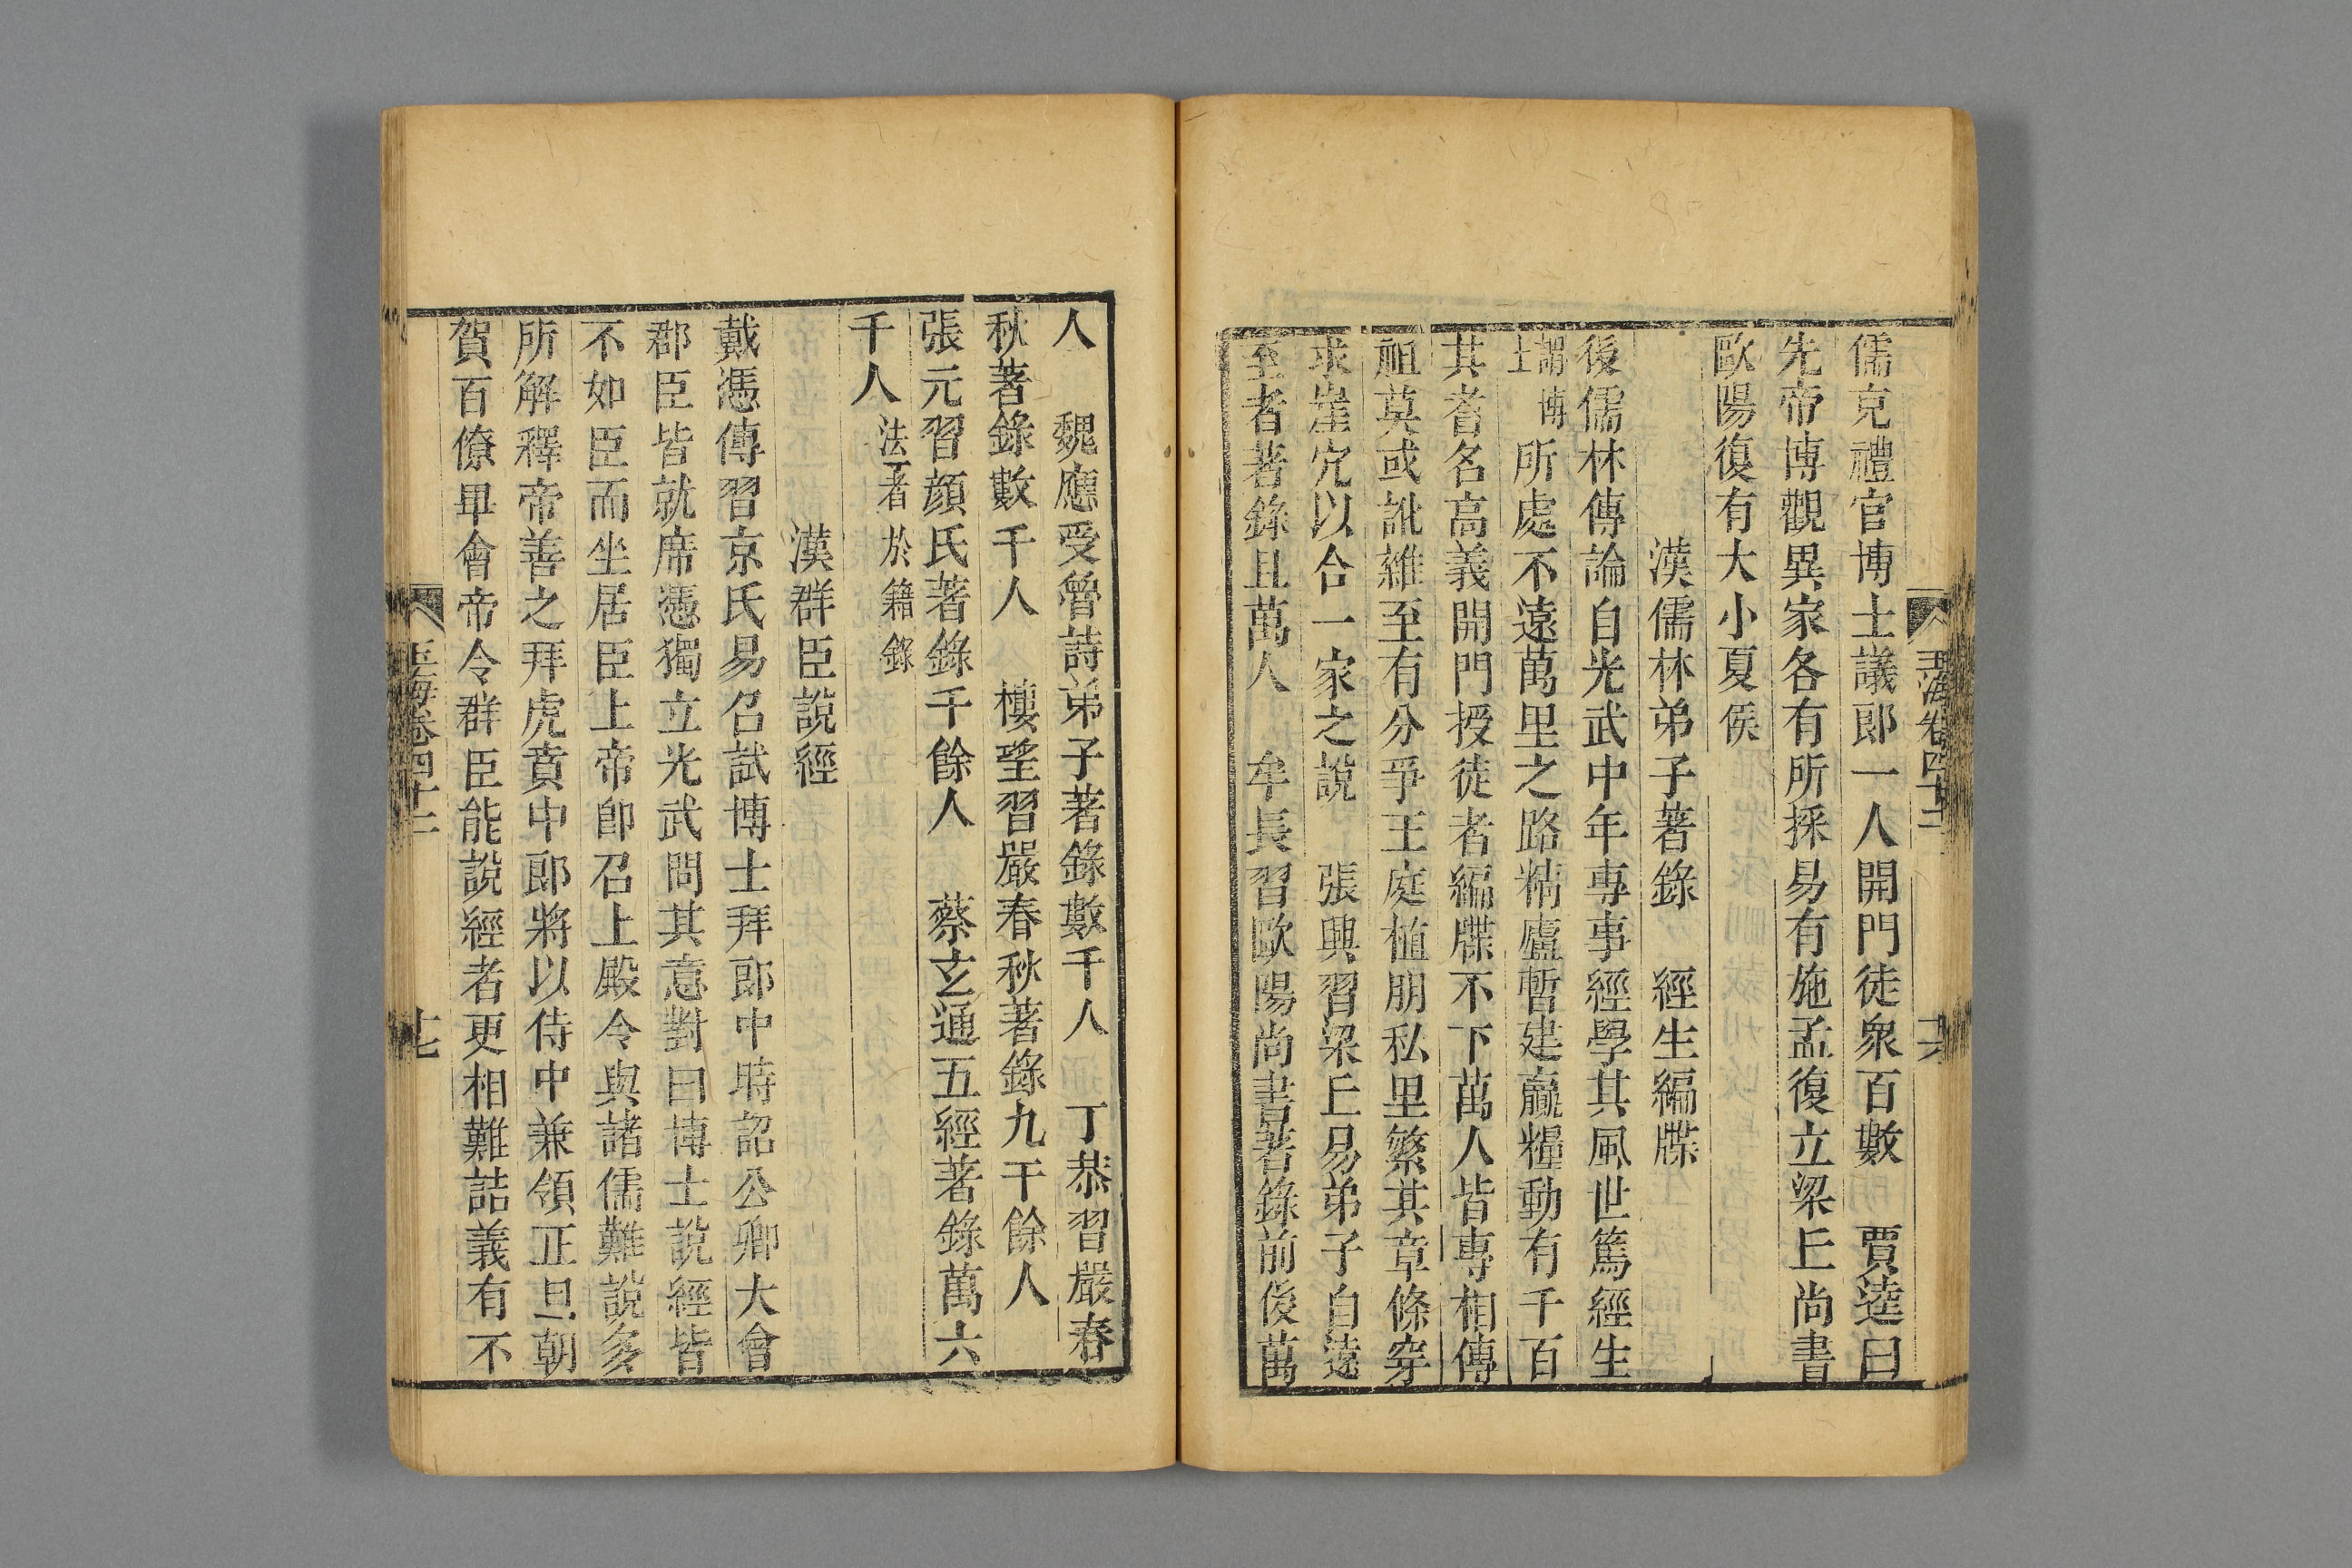 玉海卷四十二
十六
儒克禮官博士議郎一人開門徒衆百數　賈逵曰
先帝博觀異家各有所採易有施孟復立梁丘尚書
歐陽復有大小夏侯
漢儒林弟子著錄　經生編牒
後儒林傳論自光武中年專事經學其風世篤經生
謂博士所處不遠萬里之路精廬暫建贏糧動有千百
其耆名高義開門授徒者編牒不下萬人皆專相傳
祖莫或訛雜至有分爭王庭植朋私里繁其章條穿
求崖穴以合一家之說　張興習梁丘易弟子自遠
至者著錄且萬人　牟長習歐陽尚書著錄前後萬
人　魏應受魯詩弟子著錄數千人　丁恭習嚴春
秋著錄數千人　樓望習嚴春秋著錄九千餘人
張元習顔氏著錄千餘人　蔡玄通五經著錄萬六
千人
於籍錄
漢群臣說經
戴憑傳習京氏易召試博士拜郎中時詔公卿大會
郡臣皆就席憑獨立光武問其意對曰博士說經皆
不如臣而坐居臣上帝卽召上殿令與諸儒難說多
所解釋帝善之拜虎賁中郎將以侍中兼領正旦朝
賀百僚畢會帝令群臣能說經者更相難詰義有不
玉海卷四十二
十七